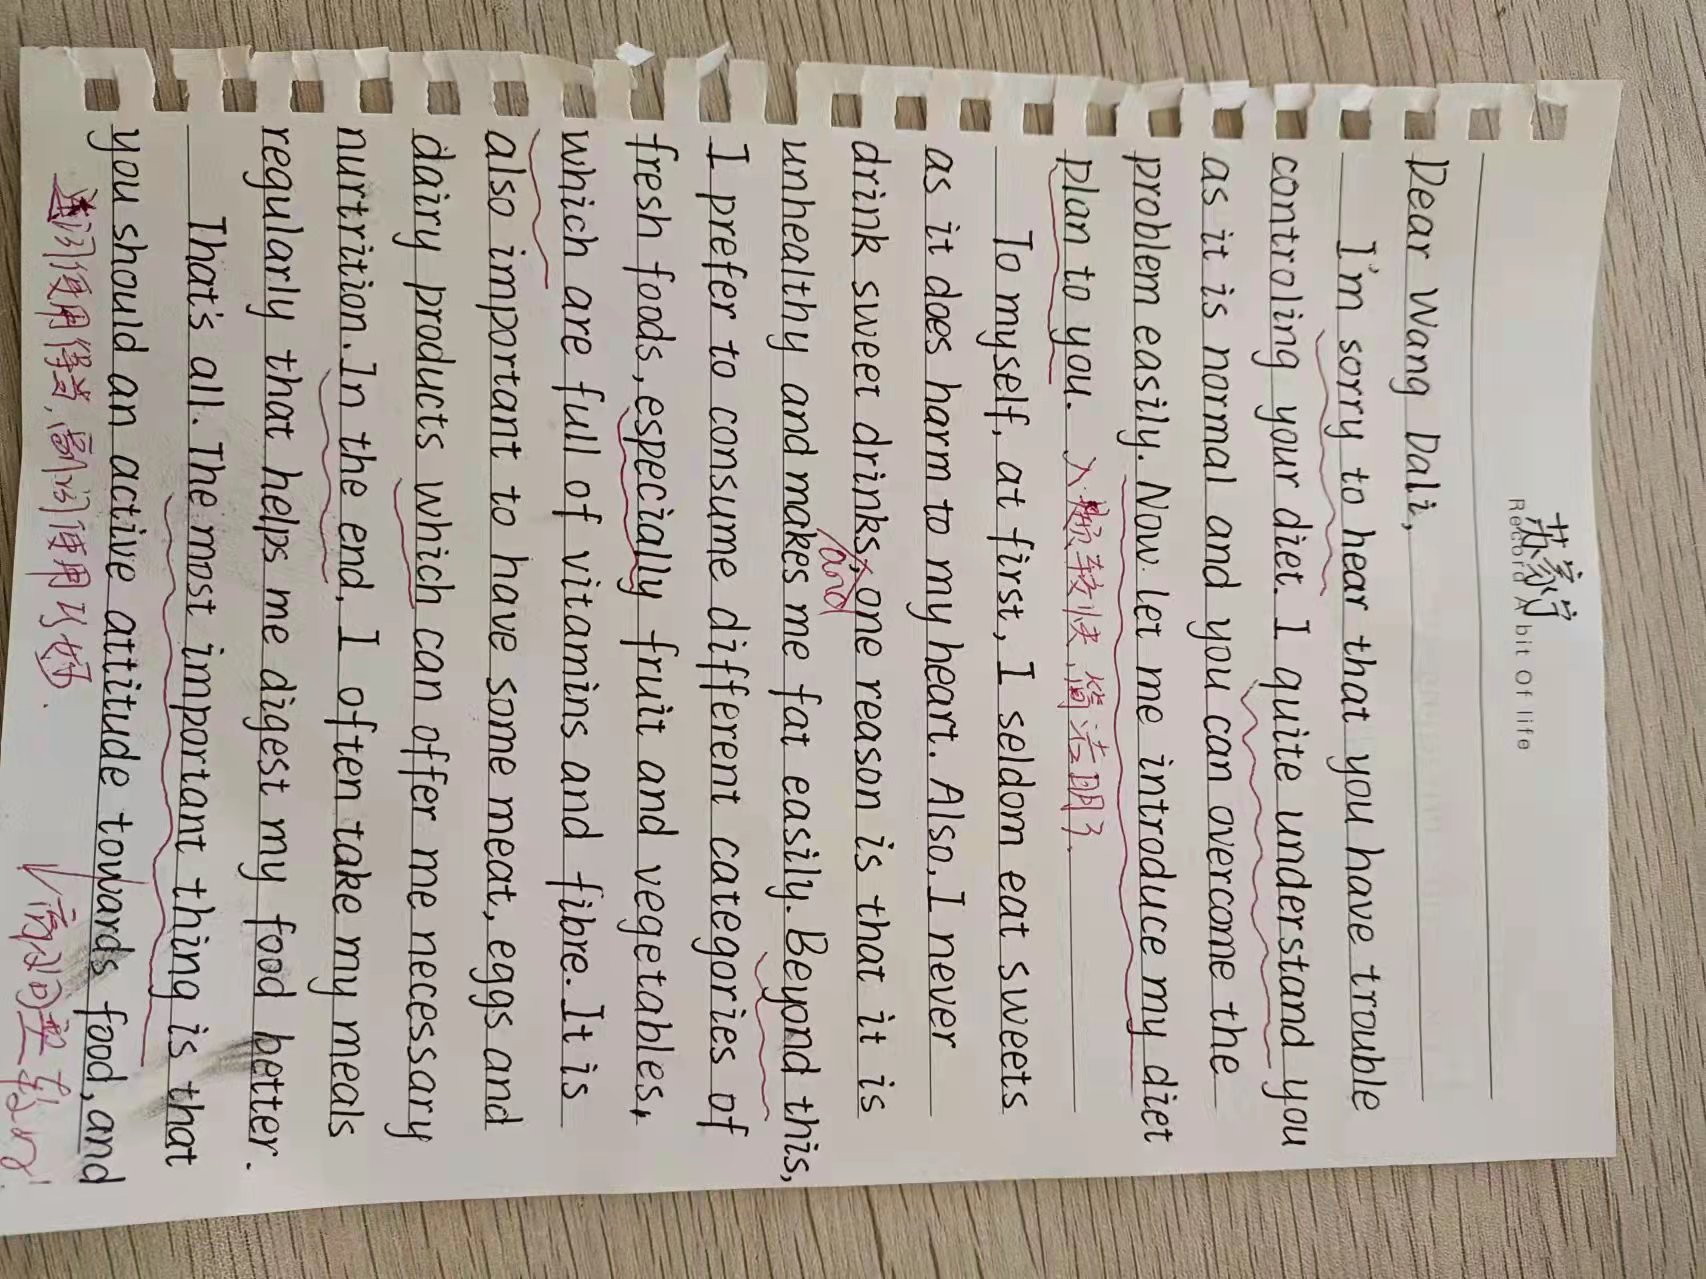 苏家宁
Record A bit Of life
Dear Wang Dali,
I'm sorry to hear that you have trouble
controling your diet. I quite understand you
as it is normal and you can overcome the
problem easily. Now let me introduce my diet
plan to you.
转快,简洁明了.
To myself, at first, I seldom eat sweets
as it does harm to my heart. Also, I never
drink sweet drinks, one reason is that it is
and
unhealthy and makes me fat easily. Beyond this,
I prefer to consume different categories of
fresh foods, especially fruit and vegetables,
which are full of vitamins and fibre. It is
also important to have some meat, eggs and
dairy products which can offer me necessary
nurtrition. In the end, I often take my meals
regularly that helps me digest my food better.
That's all. The most important thing is that
you should an active attitude towards food, and
连词使用得当,高词使用巧妙.